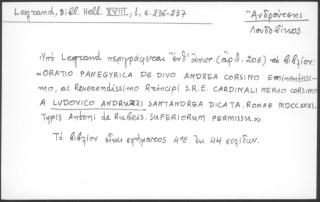 Legrand, Bibl. Hell. XVIII, 1, σ. 236-237
Ἀνδρούτσης
Λουδοβῖκος
Ὑπὸ Legrand περιγράφεται ἔνθ' ἄνωτ. (ἀριθ. 206) τὸ βιβλίον:
«ORATIO PANEGYRICA DE DIVO ANDREA CORSINO Eminentissi-
mo, ac Reverendissimo Principi S.R.E. CARDINALI NERIO CORSINO
A LUDOVICO ANDRUZZI SANTANDREA DICATA. ROMAE MDCCXXXI.
Typis Antoni de Rubeis. SUPERIORUM PERMISSU.»
Τὸ βιβλίον εἶναι σχήματος 4ον ἐκ 44 σελίδων.